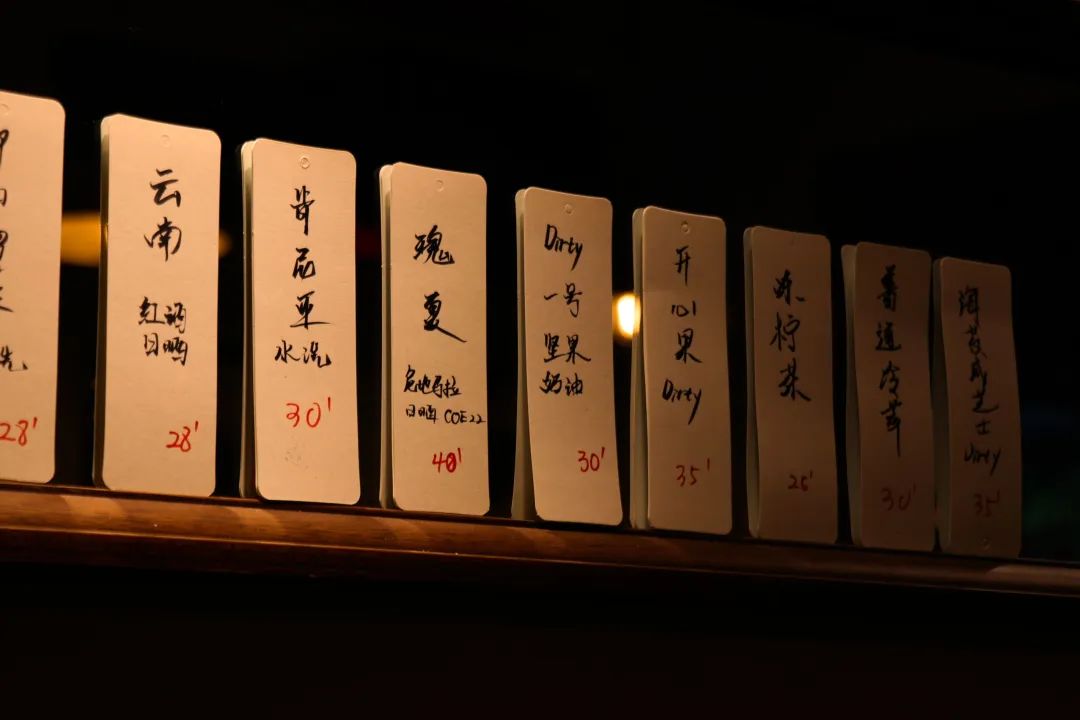 28'
云南
红酒
日晒
28'
肯尼亚
水洗
30'
瑰夏
危地马拉
日晒 COE22
40'
Dirty
一号
坚果
奶油
30'
开心果
Dirty
35'
冻柠茶
26'
普通冷萃
30'
海苔咸芝士
Dirty
35'